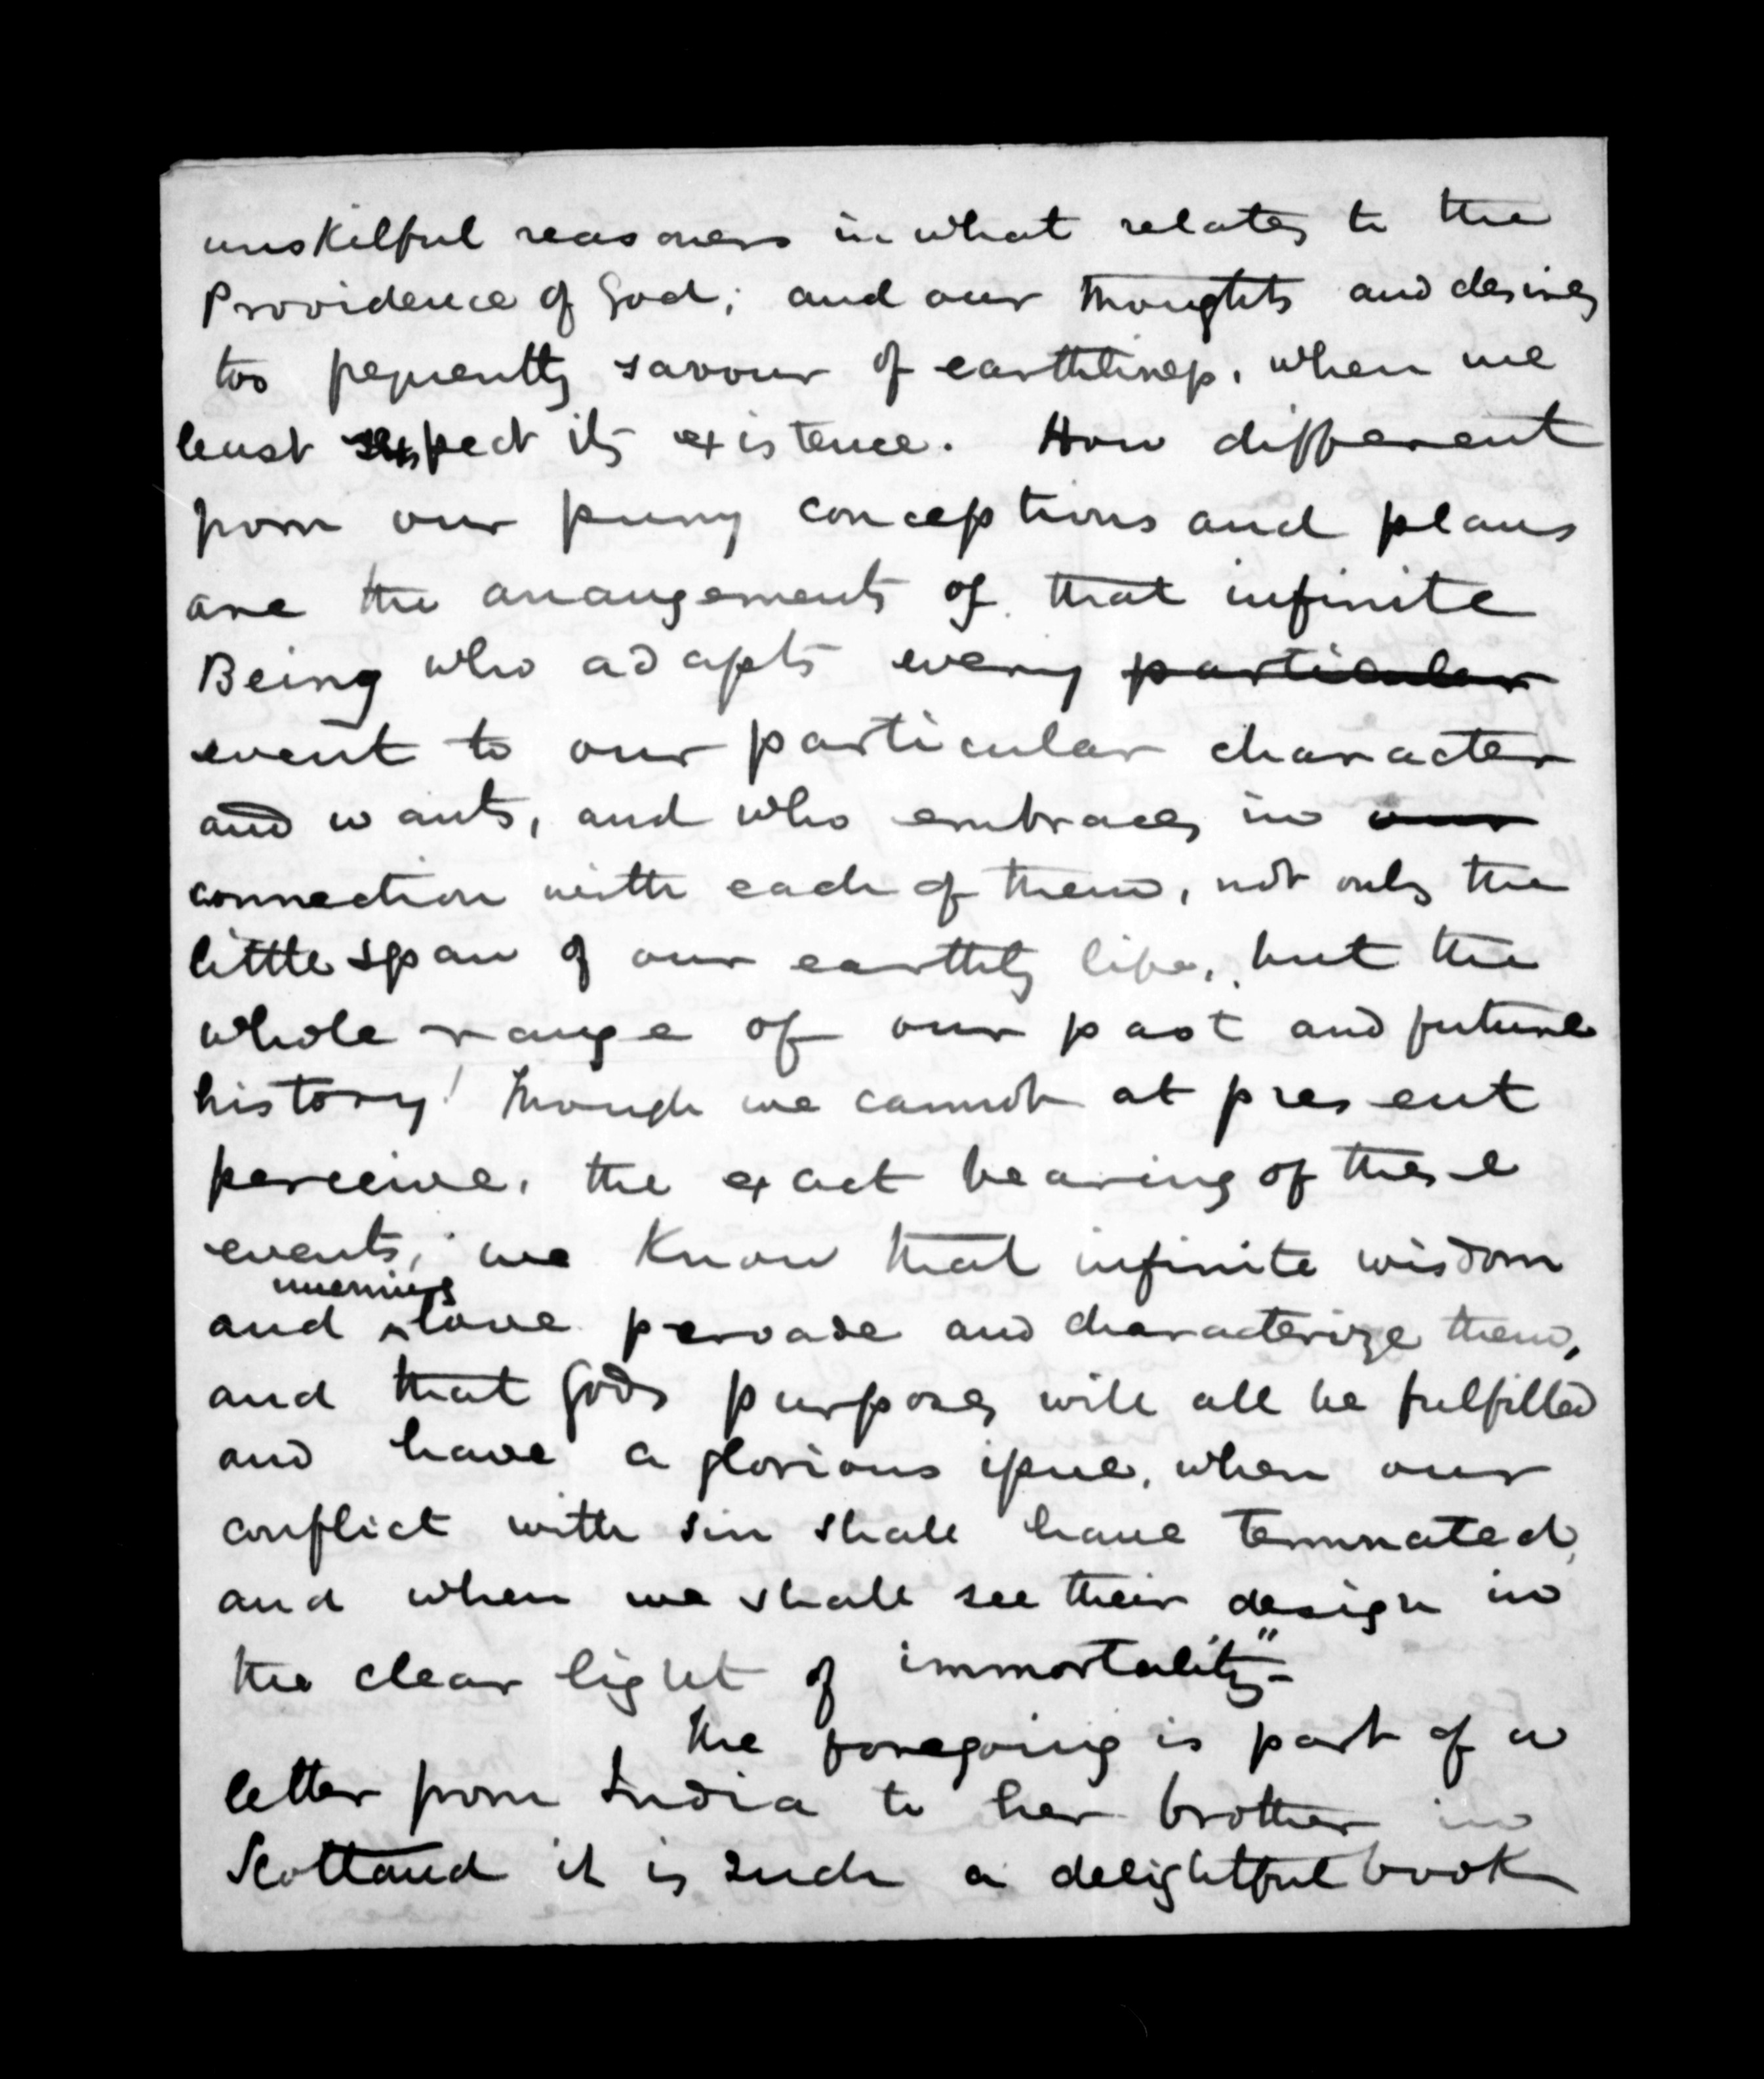 unskilful reasoners in what relates to the
Providence of God; and our thoughts and desires
too frequently savour of earthliness, when we
least suspect its existence. How different
from our puny conceptions and plans
are the arrangements of that infinite
Being who adapts every particular
event to our particular character
and wants, and who embraces in our
connection with each of them, not only the
little span of our earthly life, but the
whole range of our past and future
history! Though we cannot at present
perceive, the exact bearing of these
events, we know that infinite wisdom
and unerring love pervade and characterize them,
and that Gods purposes will all be fulfilled
and have a glorious issue, when our
conflict with sin shall have terminated,
and when we shall see their design in
the clear light of immortality"-
The foregoing is part of a
letter from India to her brother in
Scotland it is such a delightful book